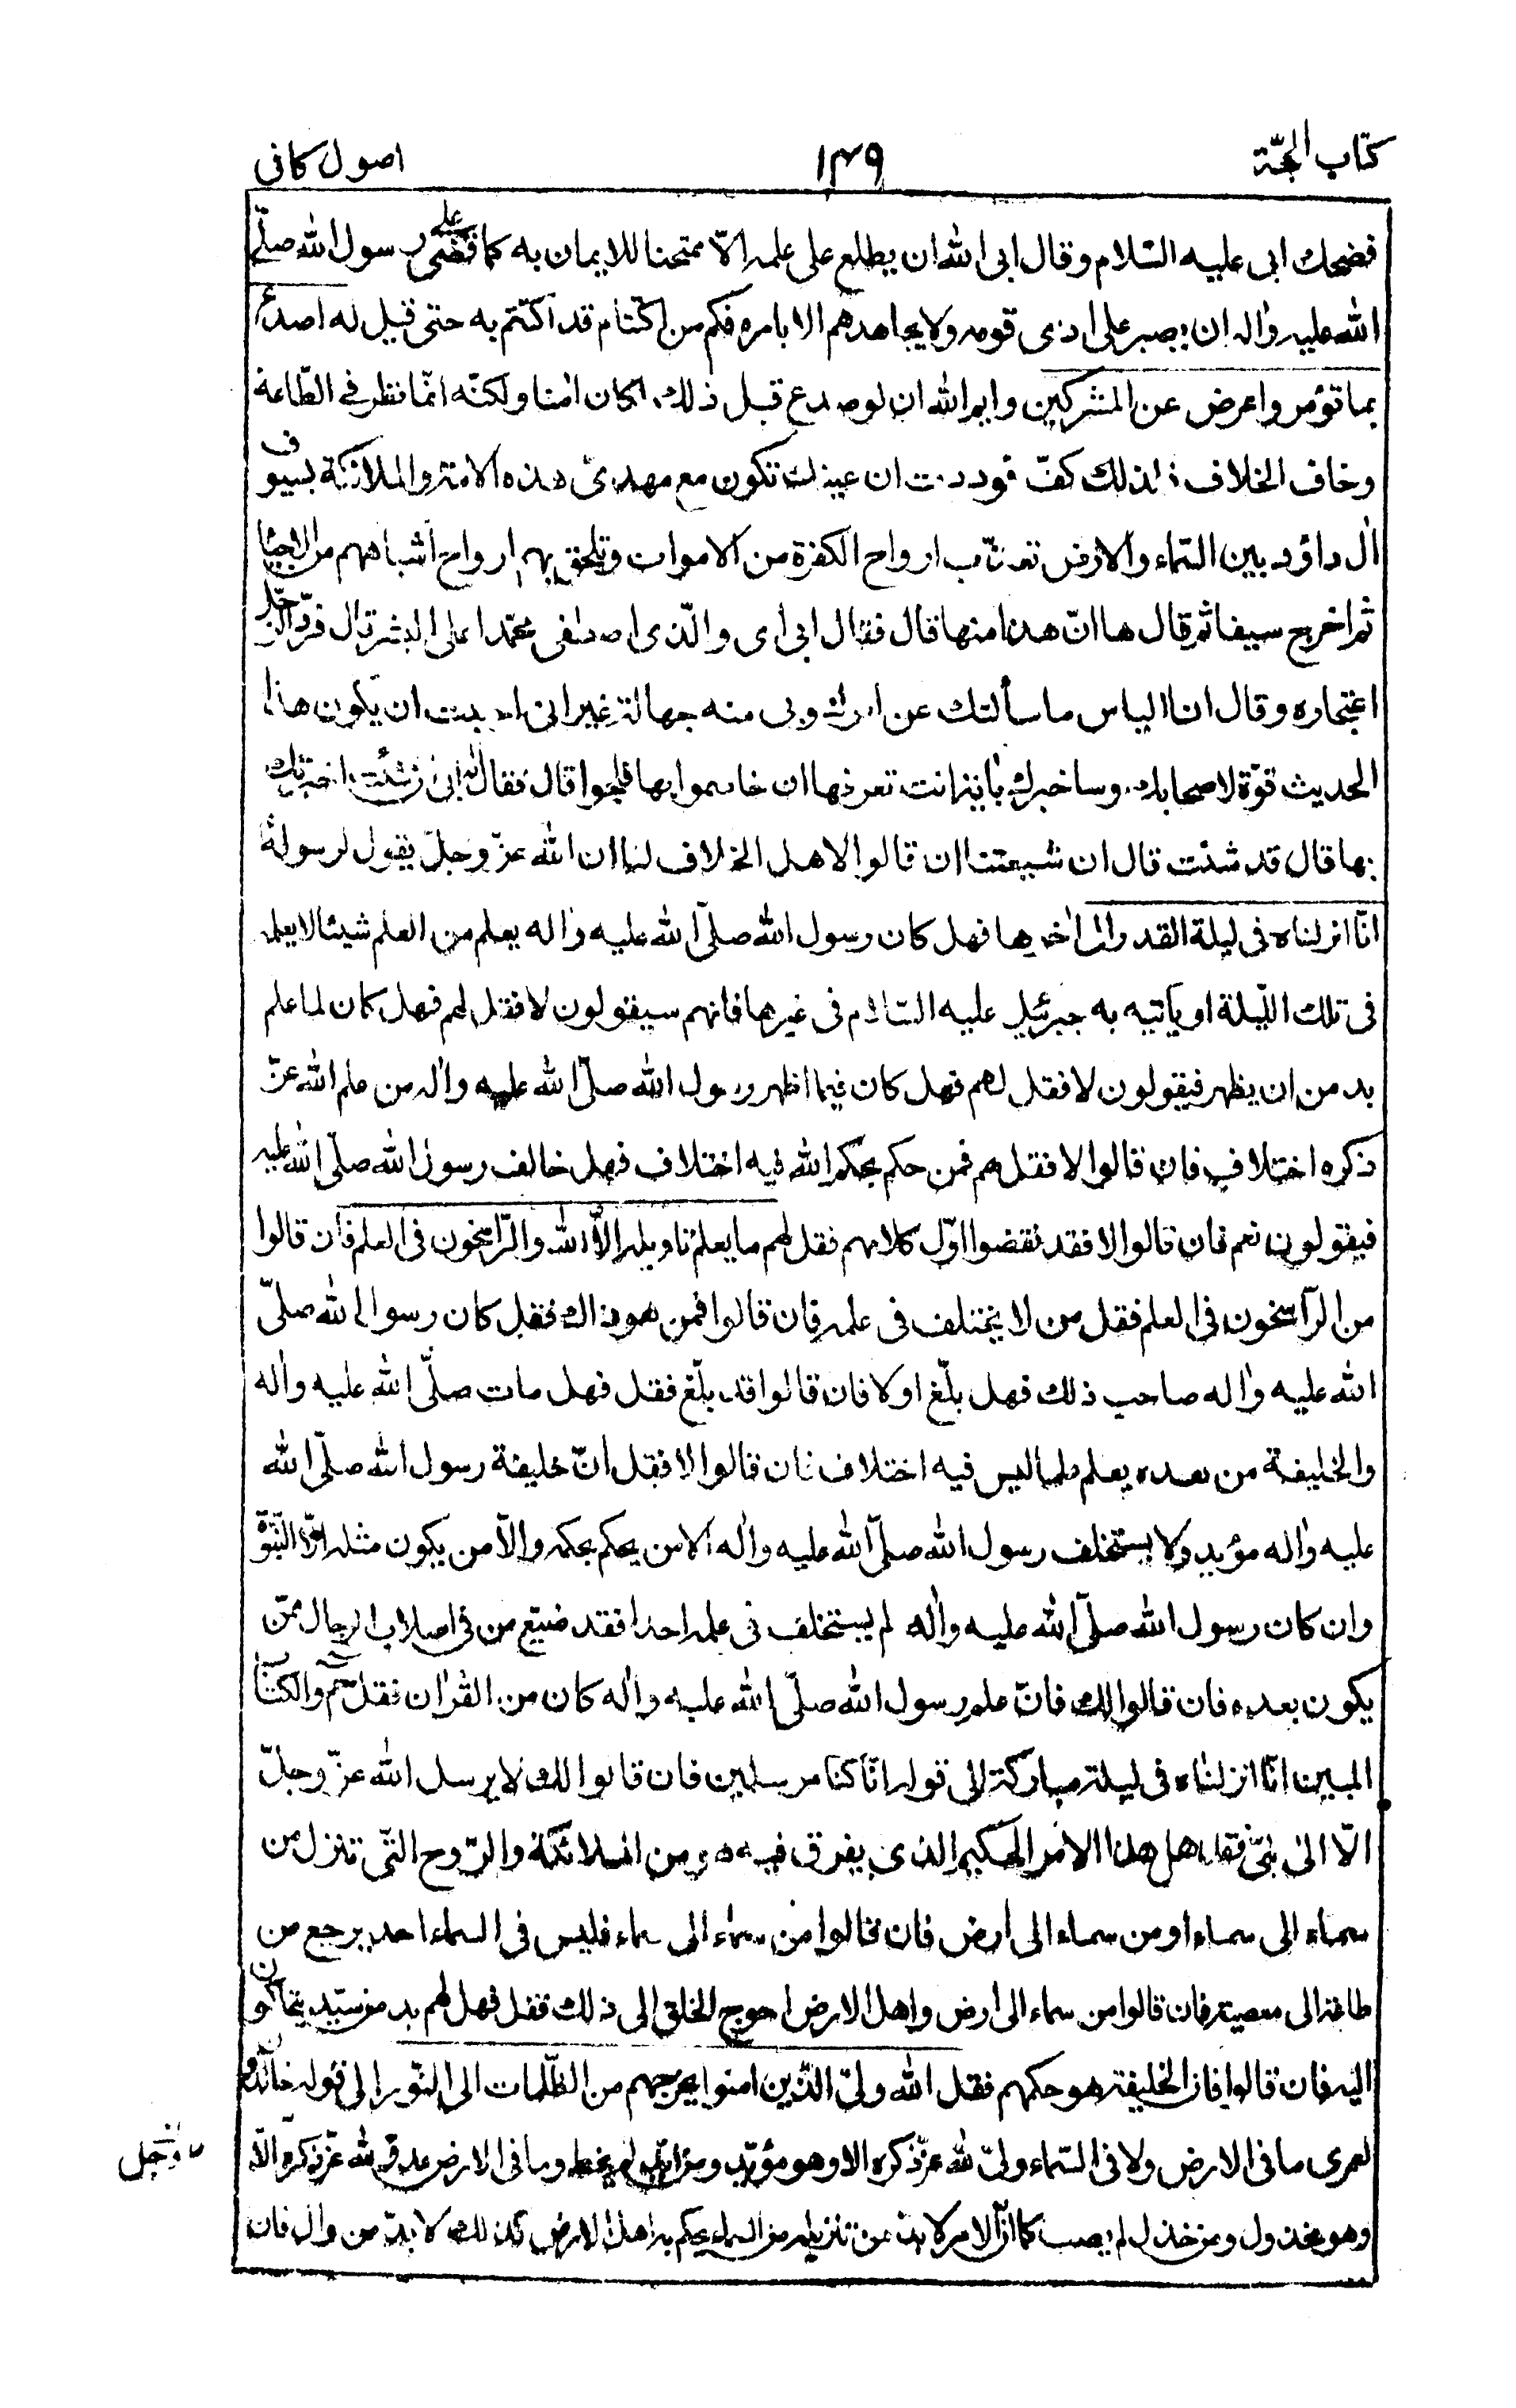 كتاب الحجّة ١٣٩ اصول كافى
فضحك ابى عليه السّلام وقال ابى الله ان يطلع على علمه الّا ممتحنا للايمان به كما قضى على رسول الله صلّى
الله عليه واٰله ان يصبر على اذى قومه ولا يجاهدهم الا بامره فكم من اكتتام قد اكتتم به حتى قيل له اصدع
بما تؤمر واعرض عن المشركين وايم الله ان لو صدع قبل ذلك لكان اٰمنا ولكنّه انّما نظر فى الطّاعة
وخاف الخلاف فلذلك كفّ فوددت ان عينك تكون مع مهدىّ هذه الامّة والملائكة بسيوف
اٰل داؤد بين السّماء والارض تعذّب ارواح الكفرة من الاموات وتلحق بهم ارواح اشباههم من الاحياء
ثم اخرج سيفا ثم قال ها انّ هذا منها قال فقال ابى اى والّذى اصطفى محمّدا على البشر قال فردّ الرّجل
اعتجاره وقال انا الياس ما سألتك عن امرك وبى منه جهالة غير انى احببت ان يكون هذا
الحديث قوّة لاصحابك وساخبرك باٰية انت تعرفها ان خاصموا بها فلجوا قال فقال له ابى ان شئت اخبرتك
بها قال قد شئت قال ان شيعتنا ان قالوا لاهل الخلاف لنا ان الله عزّ وجلّ يقول لرسوله
انّا انزلناه فى ليلة القدر الى اٰخرها فهل كان رسول الله صلّى الله عليه واٰله يعلم من العلم شيئا لا يعلمه
فى تلك اللّيلة او يأتيه به جبرئيل عليه السّلام فى غيرها فانهم سيقولون لا فقل لهم فهل كان لما علم
بد من ان يظهر فيقولون لا فقل لهم فهل كان فيما اظهر رسول الله صلّى الله عليه واٰله من علم الله عزّ
ذكره اختلاف فان قالوا لا فقل لهم فمن حكم بحكم الله فيه اختلاف فهل خالف رسول الله صلّى الله عليه
فيقولون نعم فان قالوا لا فقد نقضوا اوّل كلامهم فقل لهم ما يعلم تاويله الّا الله والرّاسخون فى العلم فان قالوا
من الرّاسخون فى العلم فقل من لا يختلف فى علمه فان قالوا فمن هو ذاك فقل كان رسول الله صلّى
الله عليه واٰله صاحب ذلك فهل بلّغ او لا فان قالوا قد بلّغ فقل فهل مات صلّى الله عليه واٰله
والخليفة من بعده يعلم علما ليس فيه اختلاف فان قالوا لا فقل انّ خليفة رسول الله صلّى الله
عليه واٰله مؤيد ولا يستخلف رسول الله صلّى الله عليه واٰله الا من يحكم بحكمه والّا من يكون مثله الّا النّبوّة
وان كان رسول الله صلّى الله عليه واٰله لم يستخلف فى علمه احدا فقد ضيّع من فى اصلاب الرجال ممّن
يكون بعده فان قالوا لك فانّ علم رسول الله صلّى الله عليه واٰله كان من القراٰن فقل حٰم والكتاب
المبين انّا انزلناه فى ليلة مباركة الى قوله انّا كنا مرسلين فان قالوا لك لا يرسل الله عزّ وجلّ
الّا الى نبىّ فقل هل هذا الامر الحكيم الذى يفرق فيه هو من الملائكة والرّوح الّتى تنزل من
سماء الى سماء او من سماء الى ارض فان قالوا من سماء الى سماء فليس فى السماء احد يرجع من
طاعة الى معصية فان قالوا من سماء الى ارض واهل الارض احوج الخلق الى ذلك فقل فهل لهم بد من سيّد يتحاكمون
اليه فان قالوا فان الخليفة هو حكمهم فقل الله ولىّ الّذين اٰمنوا يخرجهم من الظّلمات الى النّور الى قوله خالدون
لعمرى ما فى الارض ولا فى السّماء ولىّ لله عزّ ذكره الا وهو مؤيّد ومن ايّد لم يخط وما فى الارض عدوّ لله عزّ ذكره الّا
وهو مخذول ومن خذل لم يصب كما انّ الامر لا بدّ من تنزيله من السماء يحكم به اهل الارض كذلك لا بدّ من وال فان